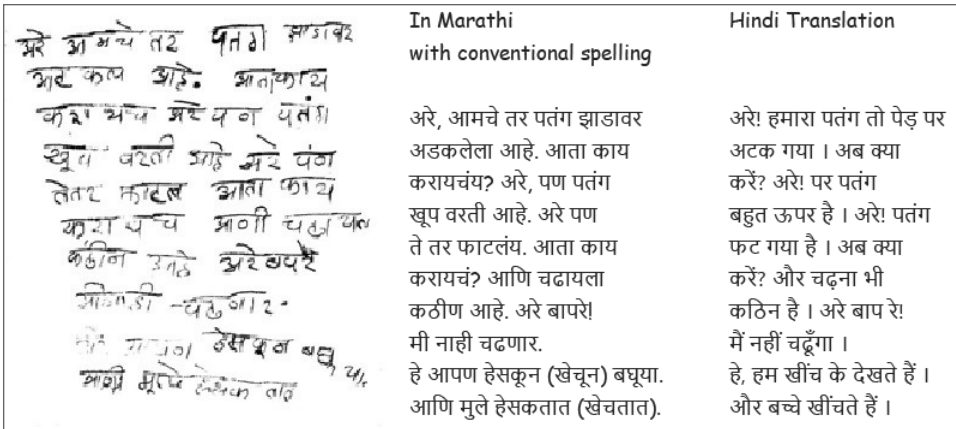 अरे आमचे तर पतग झाडावर
आहे. आताकाय
करा यच अरे पण पतंग
खूप वरती आहे अरे पंण
तेतर फाटल आता काय
करा यच आणी
कठीन आहे अरे बापरे
चढणार.
हेसकून बघू या
आणी मुले हेसक तात
In Marathi
with conventional spelling
अरे, आमचे तर पतंग झाडावर
अडकलेला आहे. आता काय
करायचंय? अरे, पण पतंग
खूप वरती आहे. अरे पण
ते तर फाटलंय. आता काय
करायचं? आणि चढायला
कठीण आहे. अरे बापरे!
मी नाही चढणार.
हे आपण हेसकून (खेचून) बघूया.
आणि मुले हेसकतात (खेचतात).
Hindi Translation
अरे! हमारा पतंग तो पेड़ पर
अटक गया । अब क्या
करें? अरे! पर पतंग
बहुत ऊपर है । अरे! पतंग
फट गया है । अब क्या
करें? और चढ़ना भी
कठिन है । अरे बाप रे!
मैं नहीं चढ़ूँगा ।
हे, हम खींच के देखते हैं ।
और बच्चे खींचते हैं ।